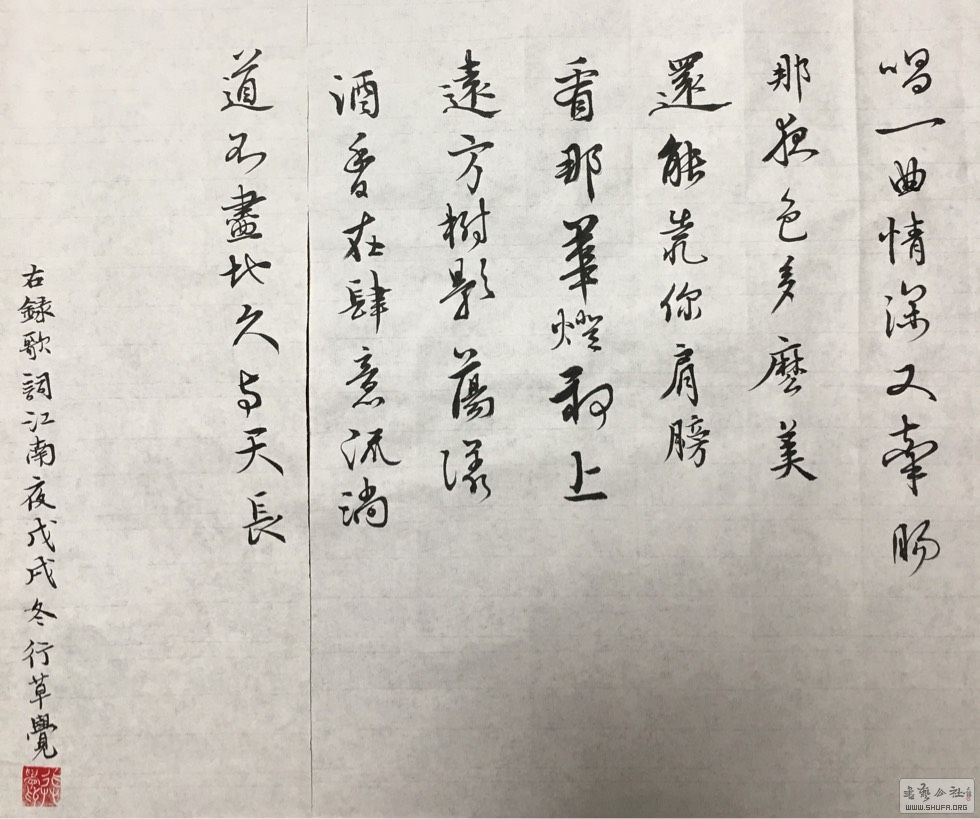 唱一曲情深又牽腸
那夜色多麼美
還能靠你肩膀
看那華燈初上
遠方樹影蕩漾
酒香在肆意流淌
道不盡地久與天長
右録歌詞江南夜戊戌冬行草覺
書藝公社
WWW.SHUFA.ORG